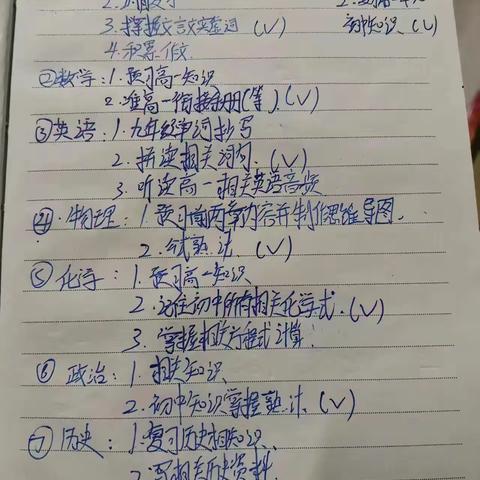 3.掌握文言文实虚词 (√) 高中知识. (√)
4.积累作文
②数学:1.预习高一知识
2.准高一衔接手册(等). (√)
③英语:1.九年级单词抄写
2.拼读相关词句. (√)
3.听读高一相关英语音频
④.物理:1.预习前两章内容并制作思维导图.
2.公式熟计. (√)
⑤化学:1.预习高一知识
2.记住初中所有相关化学式. (√)
3.掌握相关方程式计算.
⑥政治:1.相关知识、
2.初中知识掌握熟计. (√)
⑦历史:1.复习历史相知识、
2.写相关历史资料.